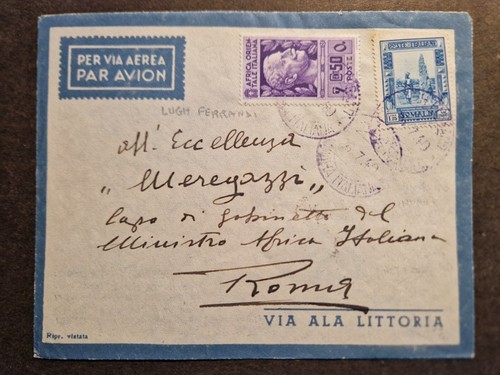 PER VIA AEREA
PAR AVION
AFRICA ORIEN
TALE ITALIANA
50
POSTE
POSTE ITALIANE
SOMALIA
LUGH FERRANDI
all' Eccellenza
"Meregazzi"
Capo di Gabinetto del
Ministro Africa Italiana
Roma
VIA ALA LITTORIA
Ripr. vietata